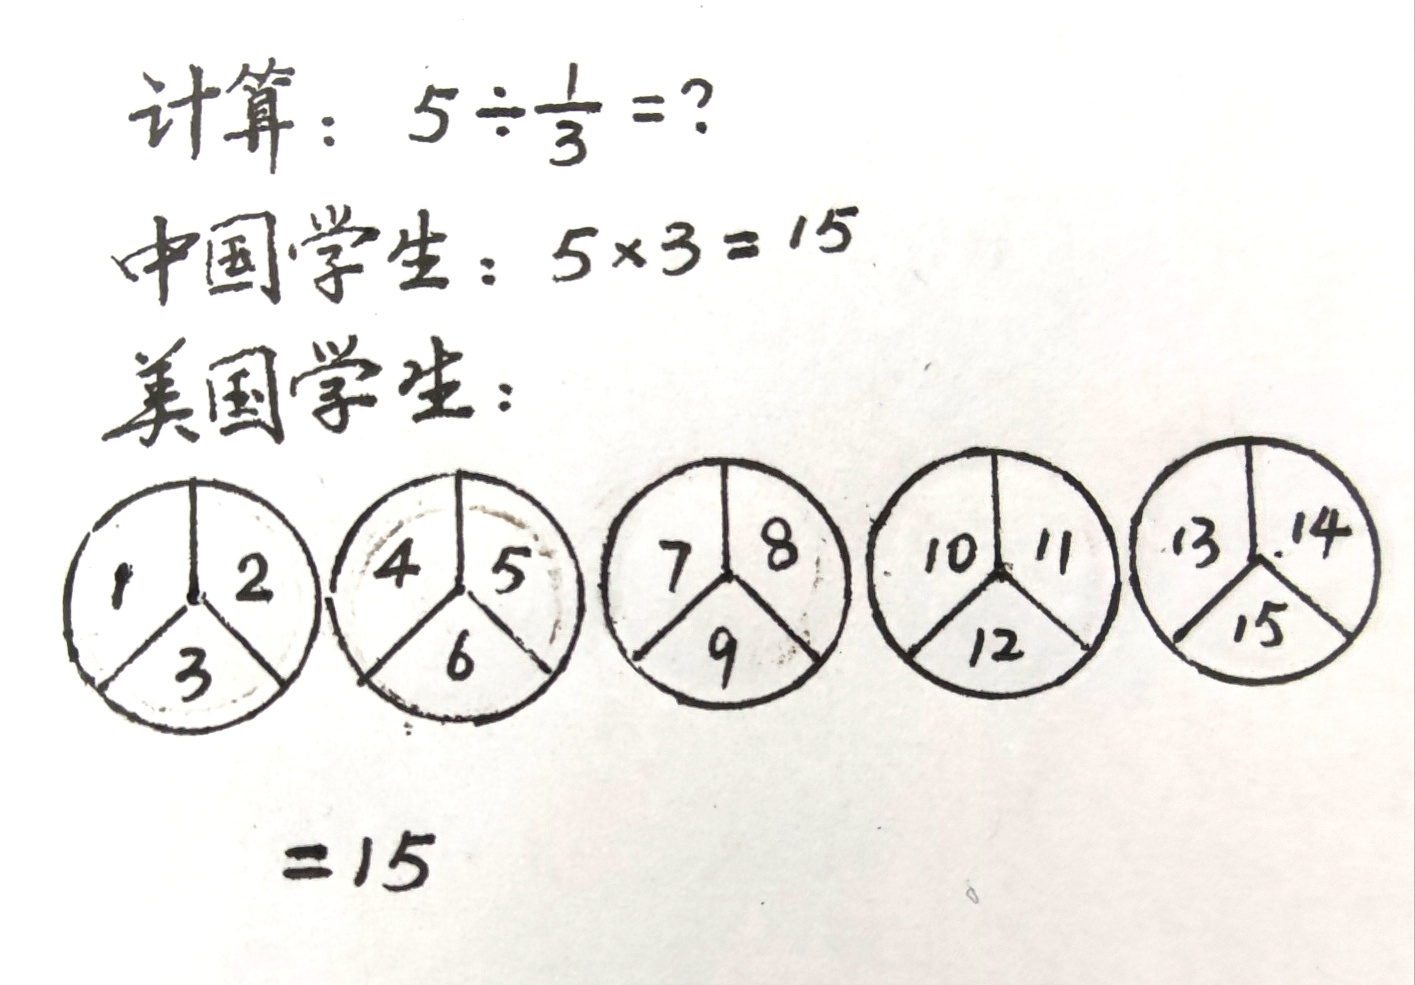 计算： 5÷1/3=?
中国学生：5×3=15
美国学生：
1 2 3 4 5 6 7 8 9 10 11 12 13 14 15
=15